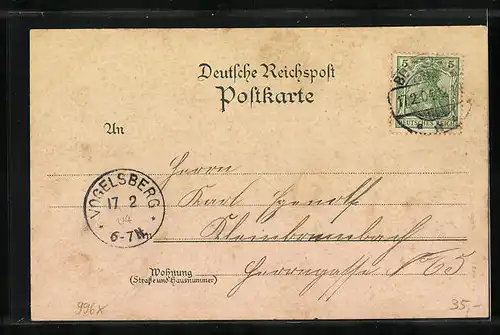 Deutsche Reichspost
Postkarte
5 5
17.2.04
DEUTSCHES REICH
An
Herrn
Karl
Kleinbrembach
Herrngasse No 65
VOGELSBERG
17 2
04
6-7N.
Wohnung
(Straße und Hausnummer)
996x
35,-